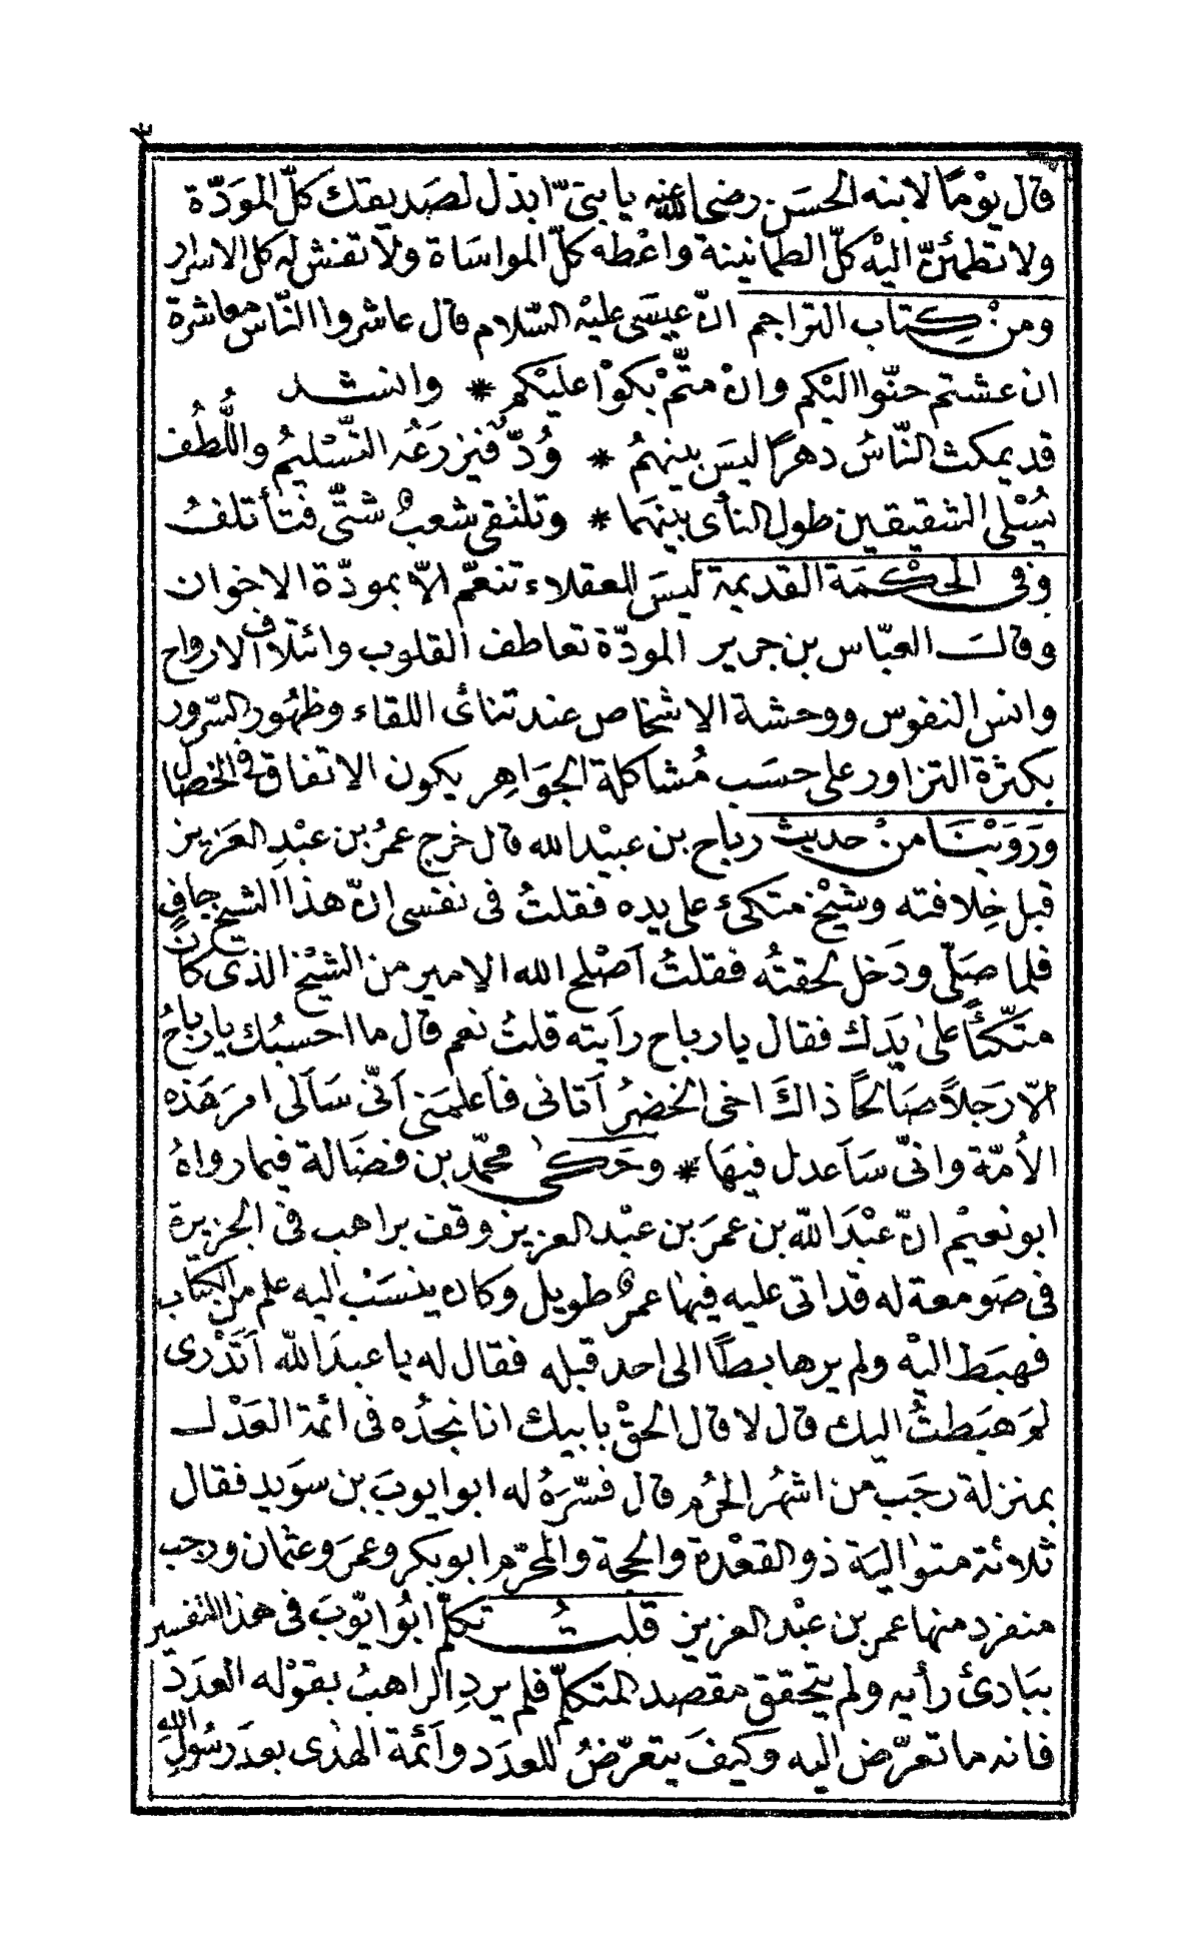 ٣
قال يوْمًا لابنه الحسَن رضى الله عنه يا بنىّ ابذل لصَديقك كلّ المَودّة
ولا تطمئنّ اليْه كلّ الطمانينة واعْطه كلّ المواسَاة ولا تفش له كل الاسرار
ومنْ كِتاب التراجم انّ عيسَى عليْه السّلام قال عاشروا النّاس معاشرة
ان عشتم حنّوا اليْكم وانْ متّمْ بكوْا عليْكم * وانشد
قد يمكث النّاسُ دهرًا ليسَ بينهمُ * وُدّ فيزرَعُه التّسْليمُ واللُّطُف
يُسْلى الشقيقين طول النأى بينهمَا * وتلتقى شعبٌ شتّى فتأتلفُ
وفى الحكْمَة القديمة ليسَ للعقلاء تنعّم الاّ بمودّة الاخوان
وقالت العبّاس بن جرير المودّة تعاطف القلوب وائتلاف الارواح
وانس النفوس ووحشة الاشخاص عند تنائى اللقاء وظهُور السّرور
بكثرة التزاور على حسَب مُشاكلة الجوَاهِر يكون الاتفاق فى الخصال
ورَوَيْنَا منْ حديث رباح بن عبيْد الله قال خرج عمرُ بن عبْدِ العَزيز
قبل خِلافته وشيْخ متكئ على يده فقلتُ فى نفسى انّ هذا الشيخ جافٍ
فلما صَلّى ودَخل لحقتُه فقلتُ اَصْلح الله الامير من الشيْخ الذى كانَ
متكّئاً علىٰ يَدَك فقال يا رباح رأيته قلتُ نعم قال ما احسبُك يا رباحُ
الاّ رَجلاً صَالحًا ذاكَ اخى الخضرُ اَتانى فاَعلمَنى اَنّى سَاَلى امرَ هَذه
الاُمّة وانّى سَاَعدل فيهَا * وحَكىٰ محمّد بن فضَالة فيما رواهُ
ابو نعيْم انّ عبْدَ اللّه بن عمرَ بن عبْد العزيز وقف براهب فى الجزيرة
فى صَومعة له قد اتى عليه فيهَا عمرٌ طويل وكان ينسَبْ اليه علم من الكتاب
فهبَط اليْه ولم ير هابطًا الى احد قبله فقال له يا عبدَ اللّه اَتَدْرى
لمَ هَبَطتُ اليك قال لا قال الحقْ بابيك انا نجدُه فى ائمة العَدْل
بمنزلة رجَب من اشهُر الحُرُم قال فسّرَهُ له ابو ايوبَ بن سوَيدٍ فقال
ثلاثة متوالية ذو القعْدة والحجة والمحرّم ابو بكر وعمرَ وعثمان ورجب
منفرد منها عمر بن عبْد العزيز قلتُ تكلّم ابُو ايّوبَ فى هذا التفسير
ببَادئ رأيه ولم يتحقق مقصد المتكلّم فلم يردِ الراهبُ بقوْله العَدَد
فانه ما تعرّض اليه وكيفَ يتعرّضُ للعدَد واَئمة الهدٰى بعدَ رَسُول الله